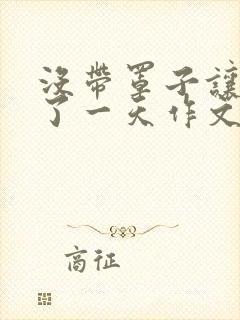 没带罩子让
了一天作文
商征